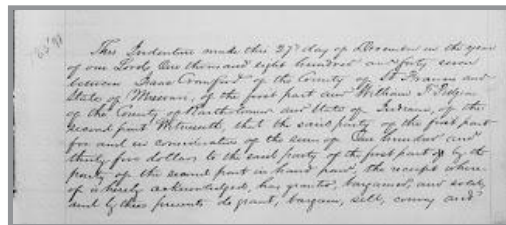 This Indenture made this 27th day of December in the year
of our Lord, One thousand eight hundred and forty seven
between Isaac Crawford of the County of St Francois and
State of Missouri, of the first part and William T.
of the County of Bartholomew and State of Indiana, of the
second part Witnesseth, that the said party of the first part
for and in consideration of the sum of One hundred and
thirty five dollars to the said party of the first part by the
party of the second part in hand paid, the receipt where-
of is hereby acknowledged, has granted, bargained, and sold,
and by these presents do grant, bargain, sell, convey and